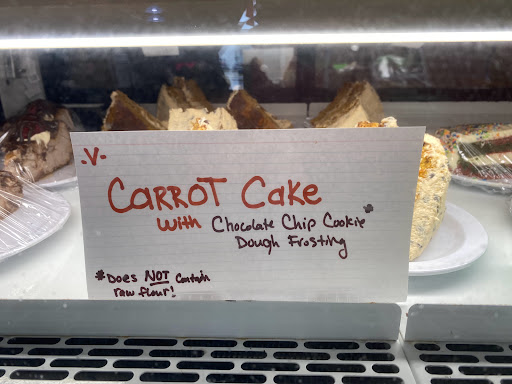 -V-
CARROT CAKE
with Chocolate Chip Cookie*
Dough Frosting
*Does NOT Contain
raw flour!